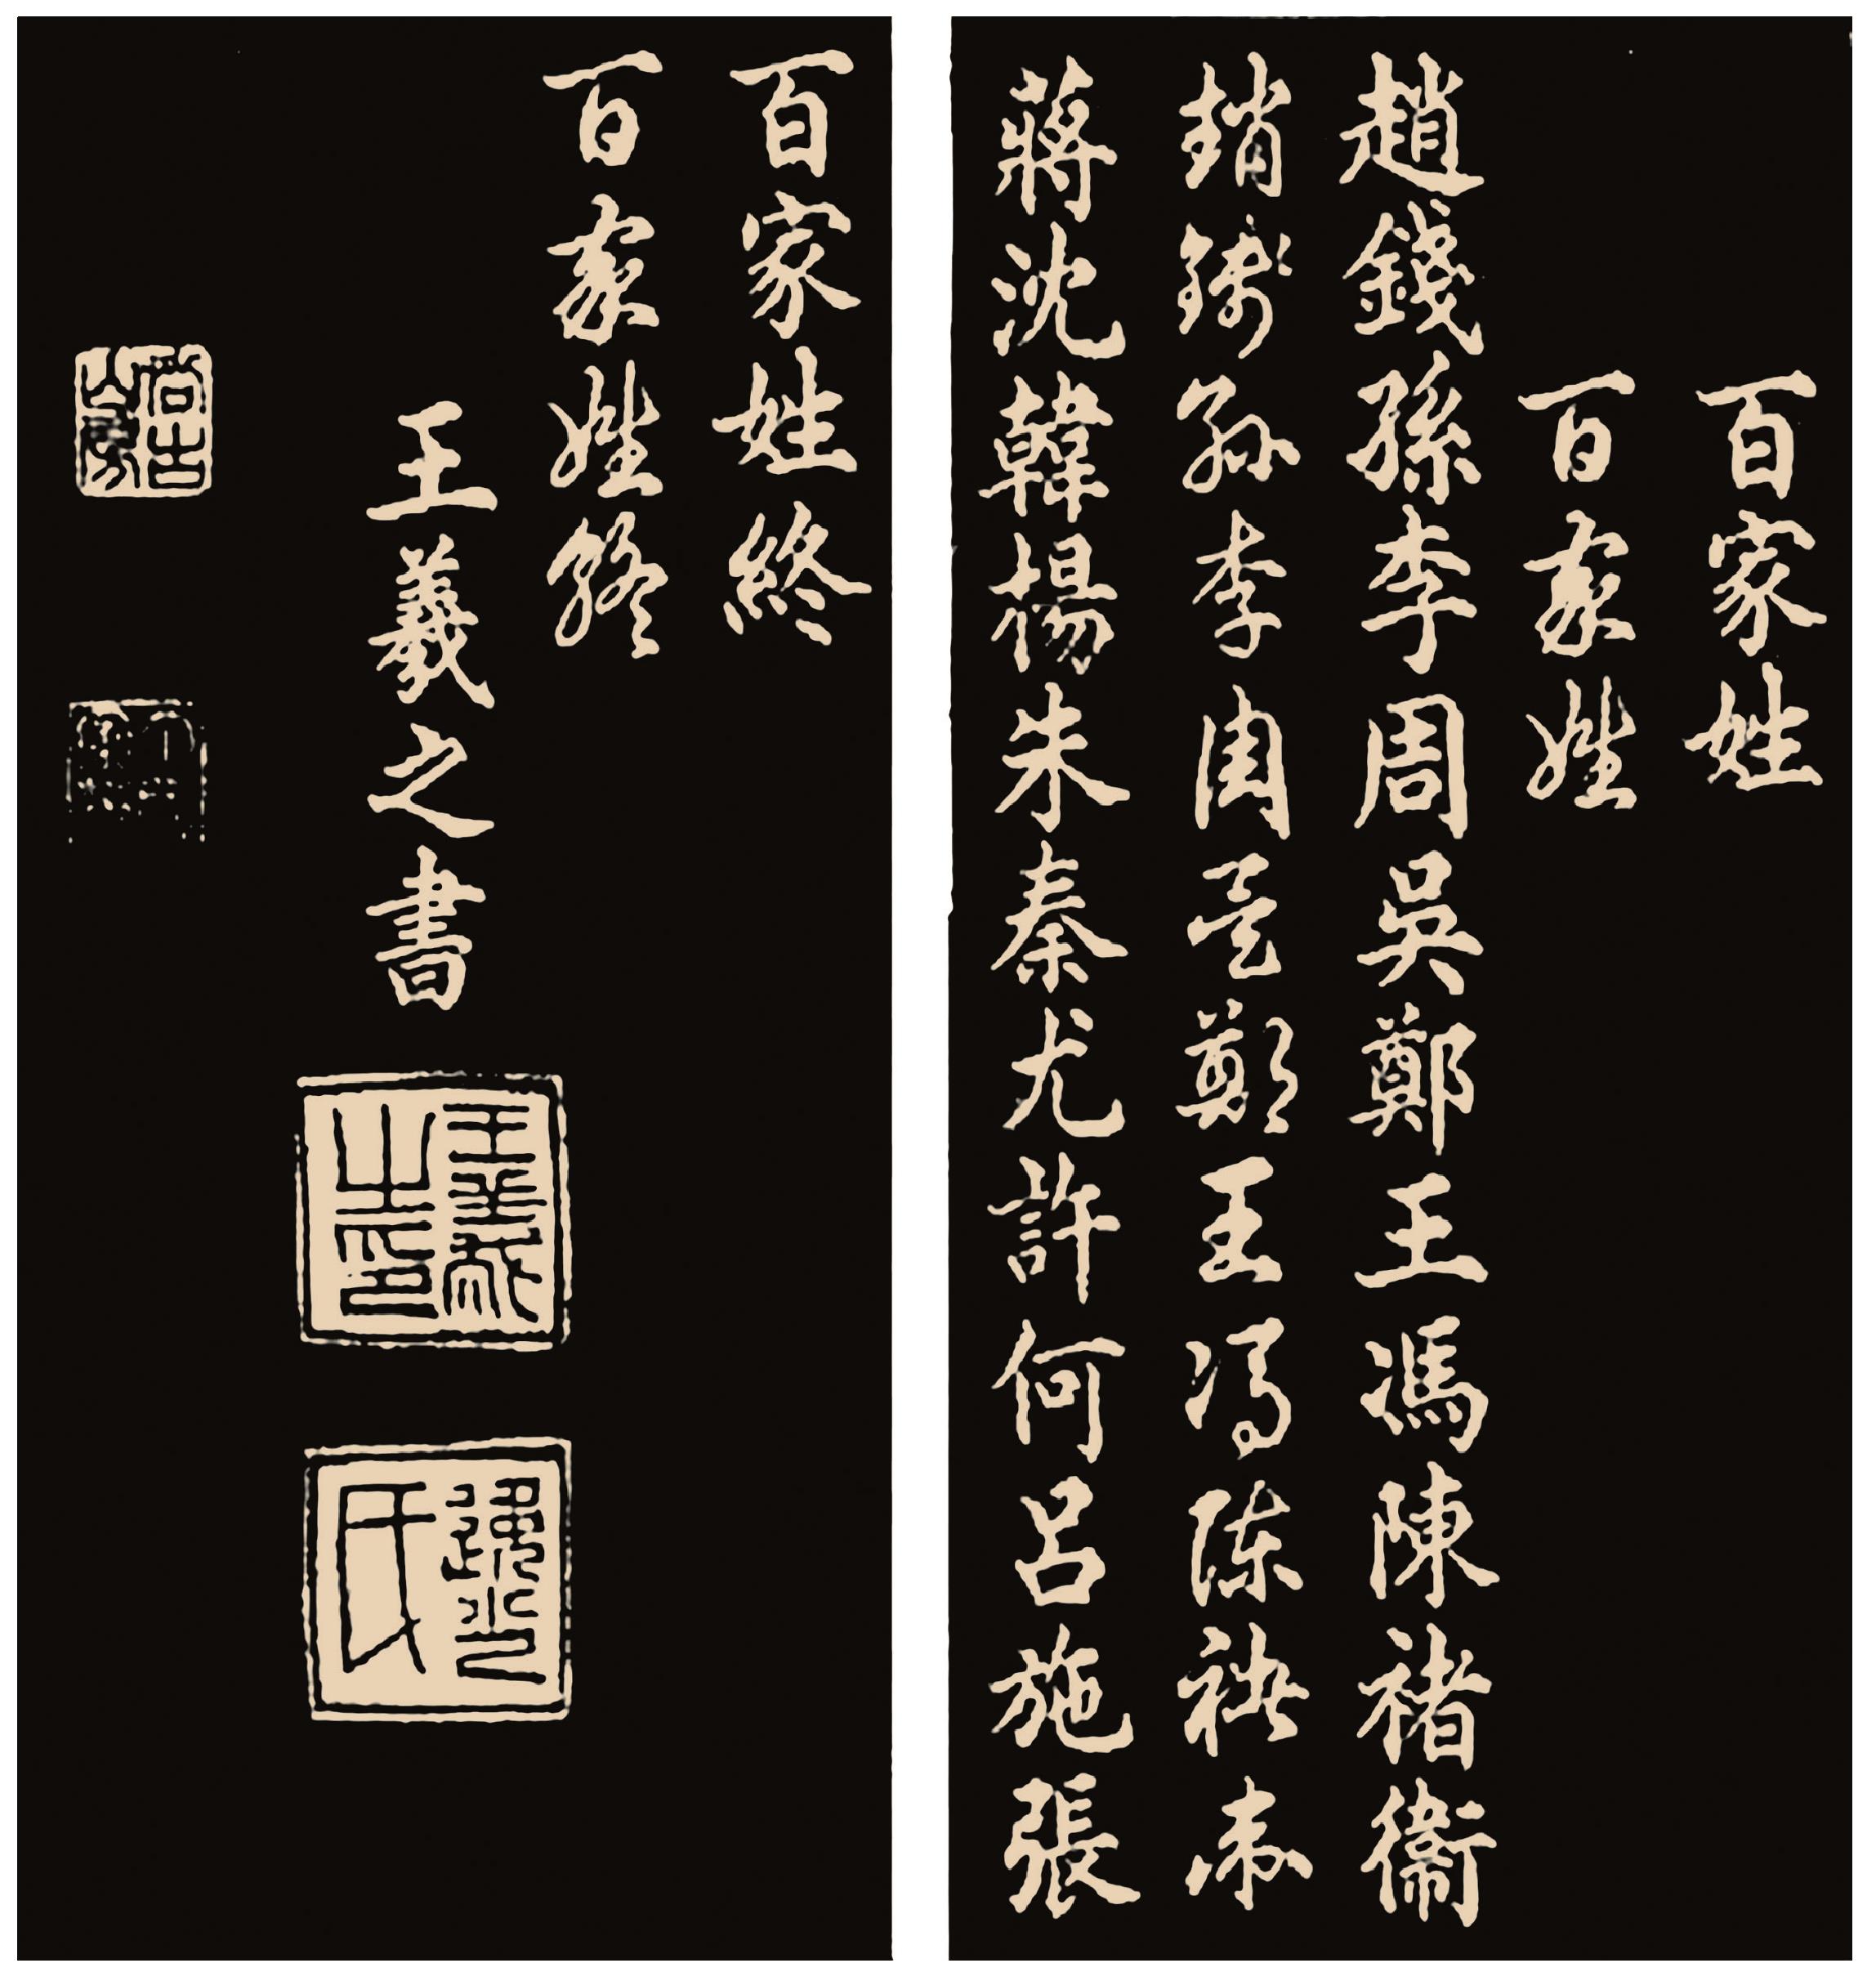 百家姓
百家姓
趙錢孫李周吳鄭王馮陳褚衛
趙錢孫李周吳鄭王馮陳褚衛
蔣沈韓楊朱秦尤許何呂施張
百家姓終
百家姓終
王羲之書